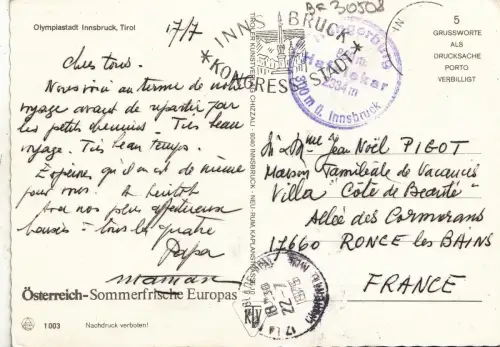 AE 30508
Olympiastadt Innsbruck, Tirol
17/7
INNSBRUCK
*KONGRESS-STADT*
Hafelekar
2334 m
300 m ü. Innsbruck
5
GRUSSWORTE
ALS
DRUCKSACHE
PORTO
VERBILLIGT
Chers tous.
Nous voici au terme de notre
voyage avant de repartir par
les petits chemins. Très beau
voyage. Très beau temps.
Espérons qu'il en est de même
pour vous. A bientôt
Avec nos plus affectueux
baisers à tous les quatre
Papa
maman
TIROLER KUNSTVERLAG CHIZZALI 6040 INNSBRUCK - NEU-RUM, KAPLANSTRASSE
Mr & Mme Jean Noël PIGOT
Maison Familiale de Vacances
Villa "Côte de Beauté"
Allée des Cormorans
17660 RONCE les BAINS
FRANCE
18 H
22-7
17
KTV
Österreich-Sommerfrische Europas
1003
Nachdruck verboten!